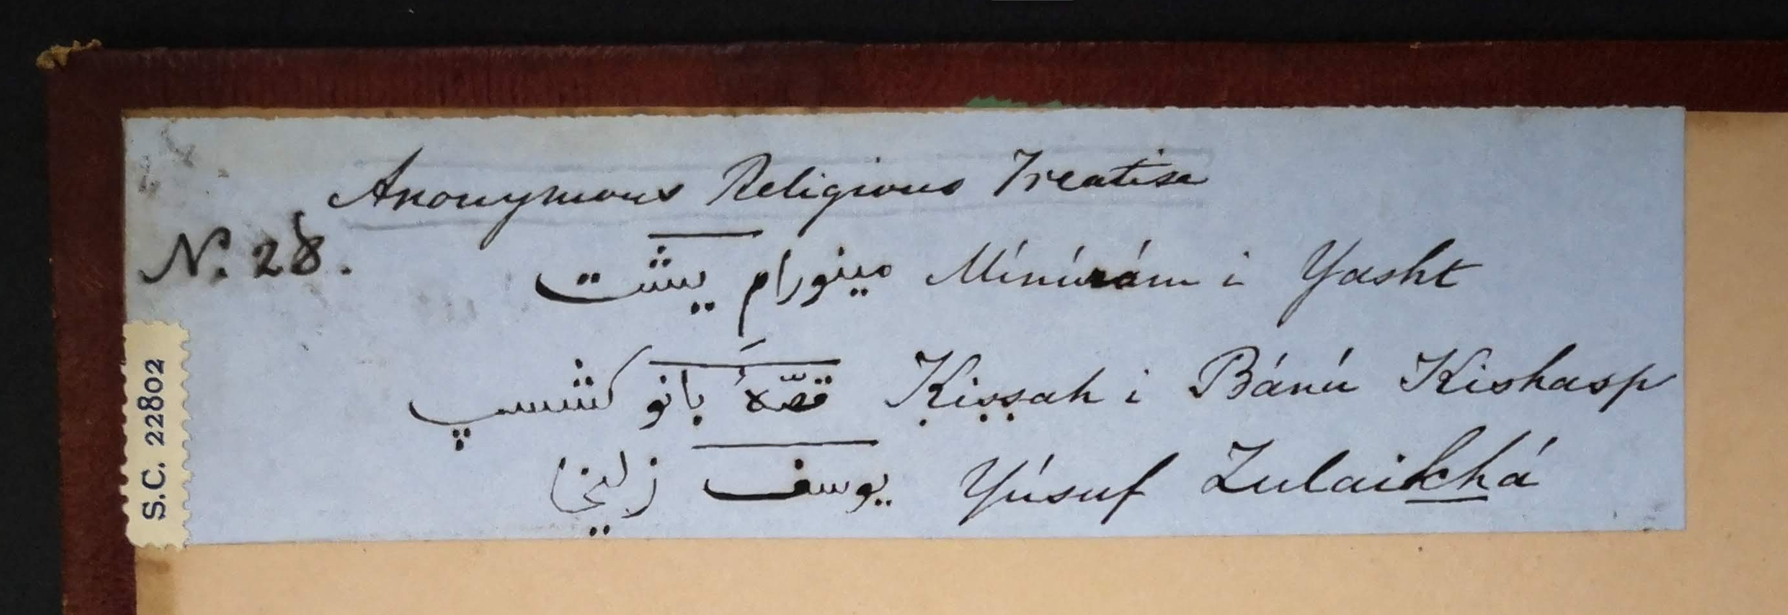 Anonymous Religious Treatise
N. 28.
مینورام یشت Mínúrám i Yasht
قصّهٔ بانو کشسپ Ḳiṣṣah i Bánú Kishasp
یوسف زلیخا Yúsuf Zulaikhá
S.C. 22802